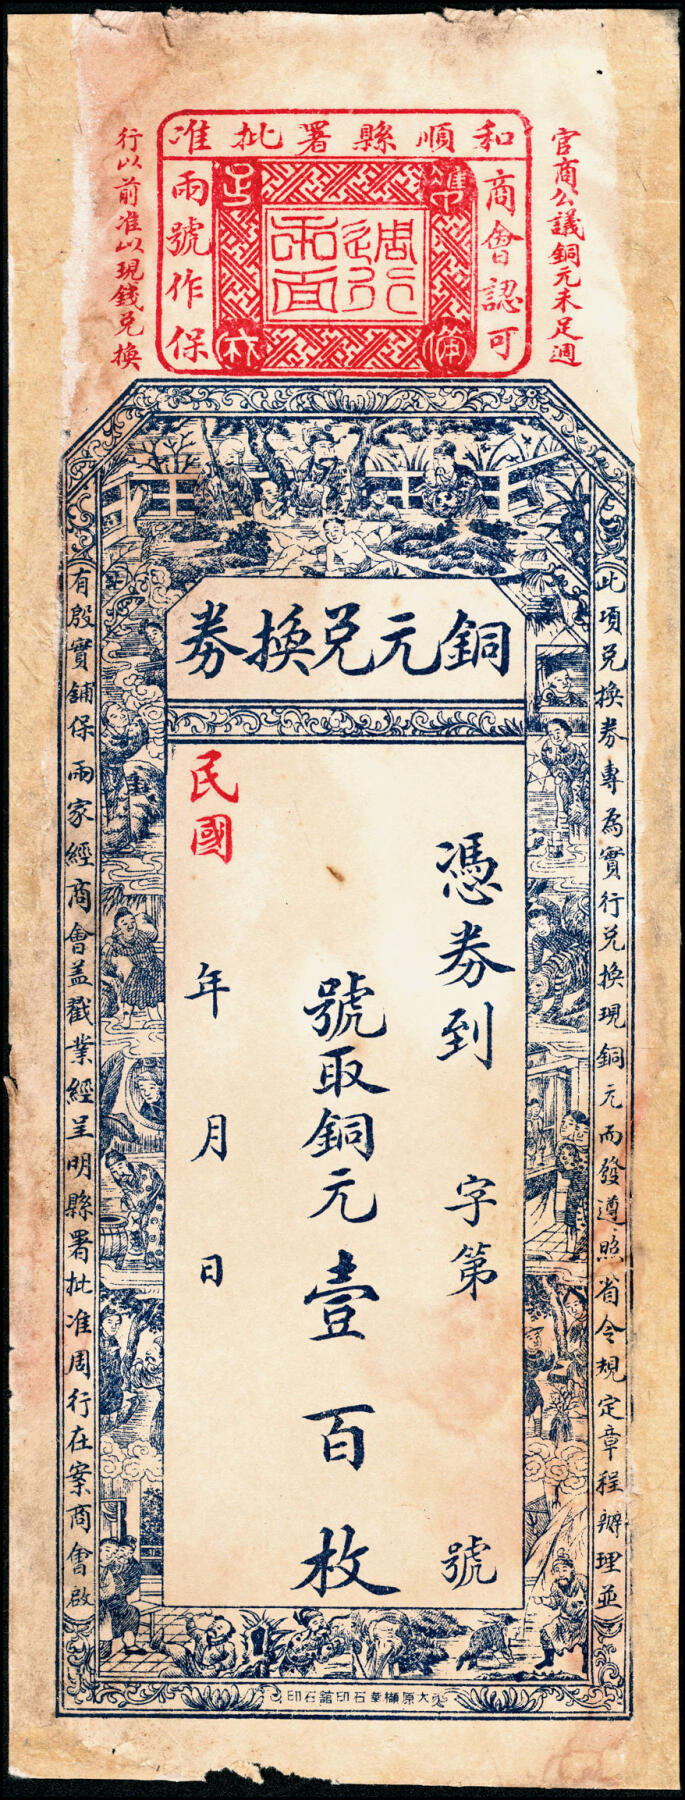 和順縣署批准
商會認可
兩號作保
週行
兩面
準
備
官商公議銅元未足週
行以前准以現錢兑換
銅元兑換券
此項兑換券專為實行兑換現銅元而發遵照省令規定章程辦理並
有殷實鋪保兩家經商會盖戳業經呈明縣署批准周行在案商會啟
憑券到 字第 號
號取銅元壹百枚
民國 年 月 日
大原櫛華石印舘石印